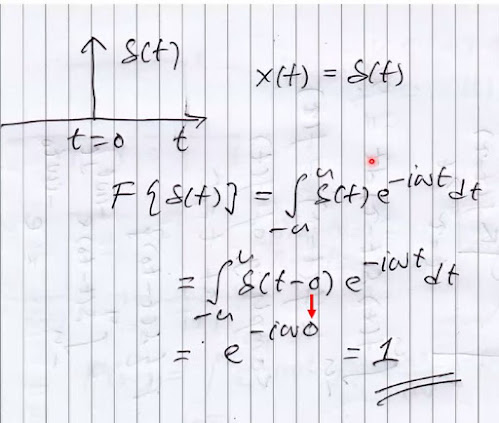 δ(t)
x(t) = δ(t)
t=0 t
F{δ(t)} = ∫_{-u}^{u} δ(t) e^{-iωt} dt
= ∫_{-u}^{u} δ(t-0) e^{-iωt} dt
= e^{-iω0} = 1